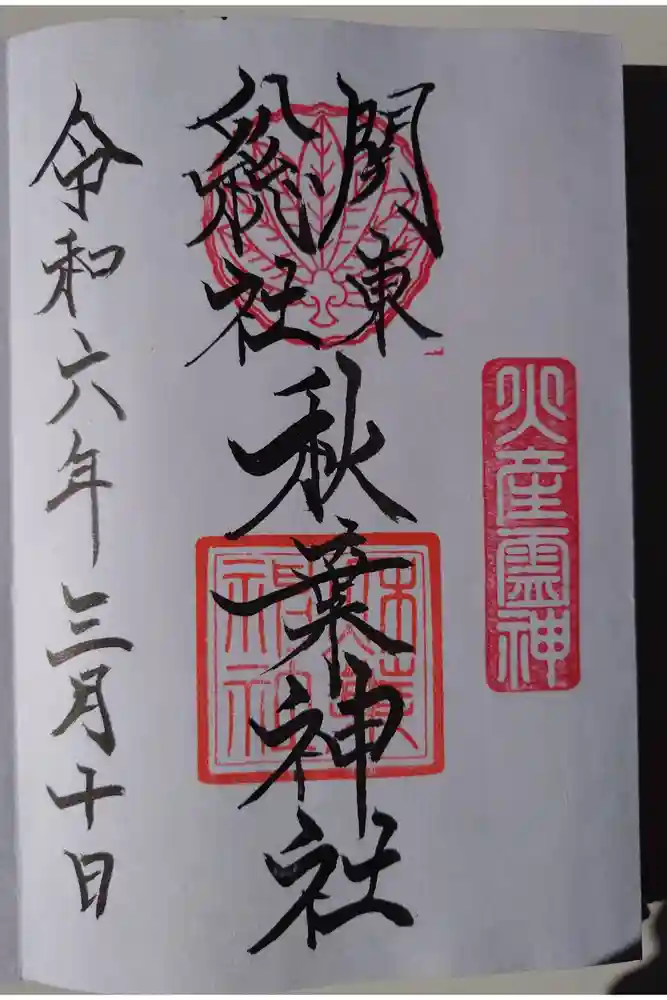 火産霊神
関東
総社
秋葉神社
令和六年三月十日